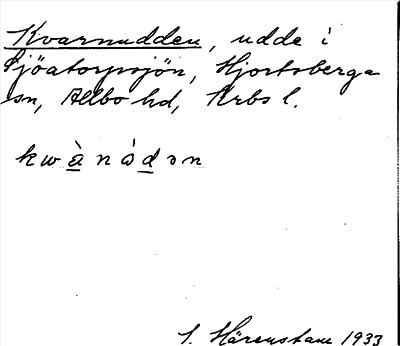 Kvarnudden, udde i
Sjöatorpsjön, Hjortsberga
sn, Allbo hd, Krbs l.
kwàńədən
S. Härenstam 1933